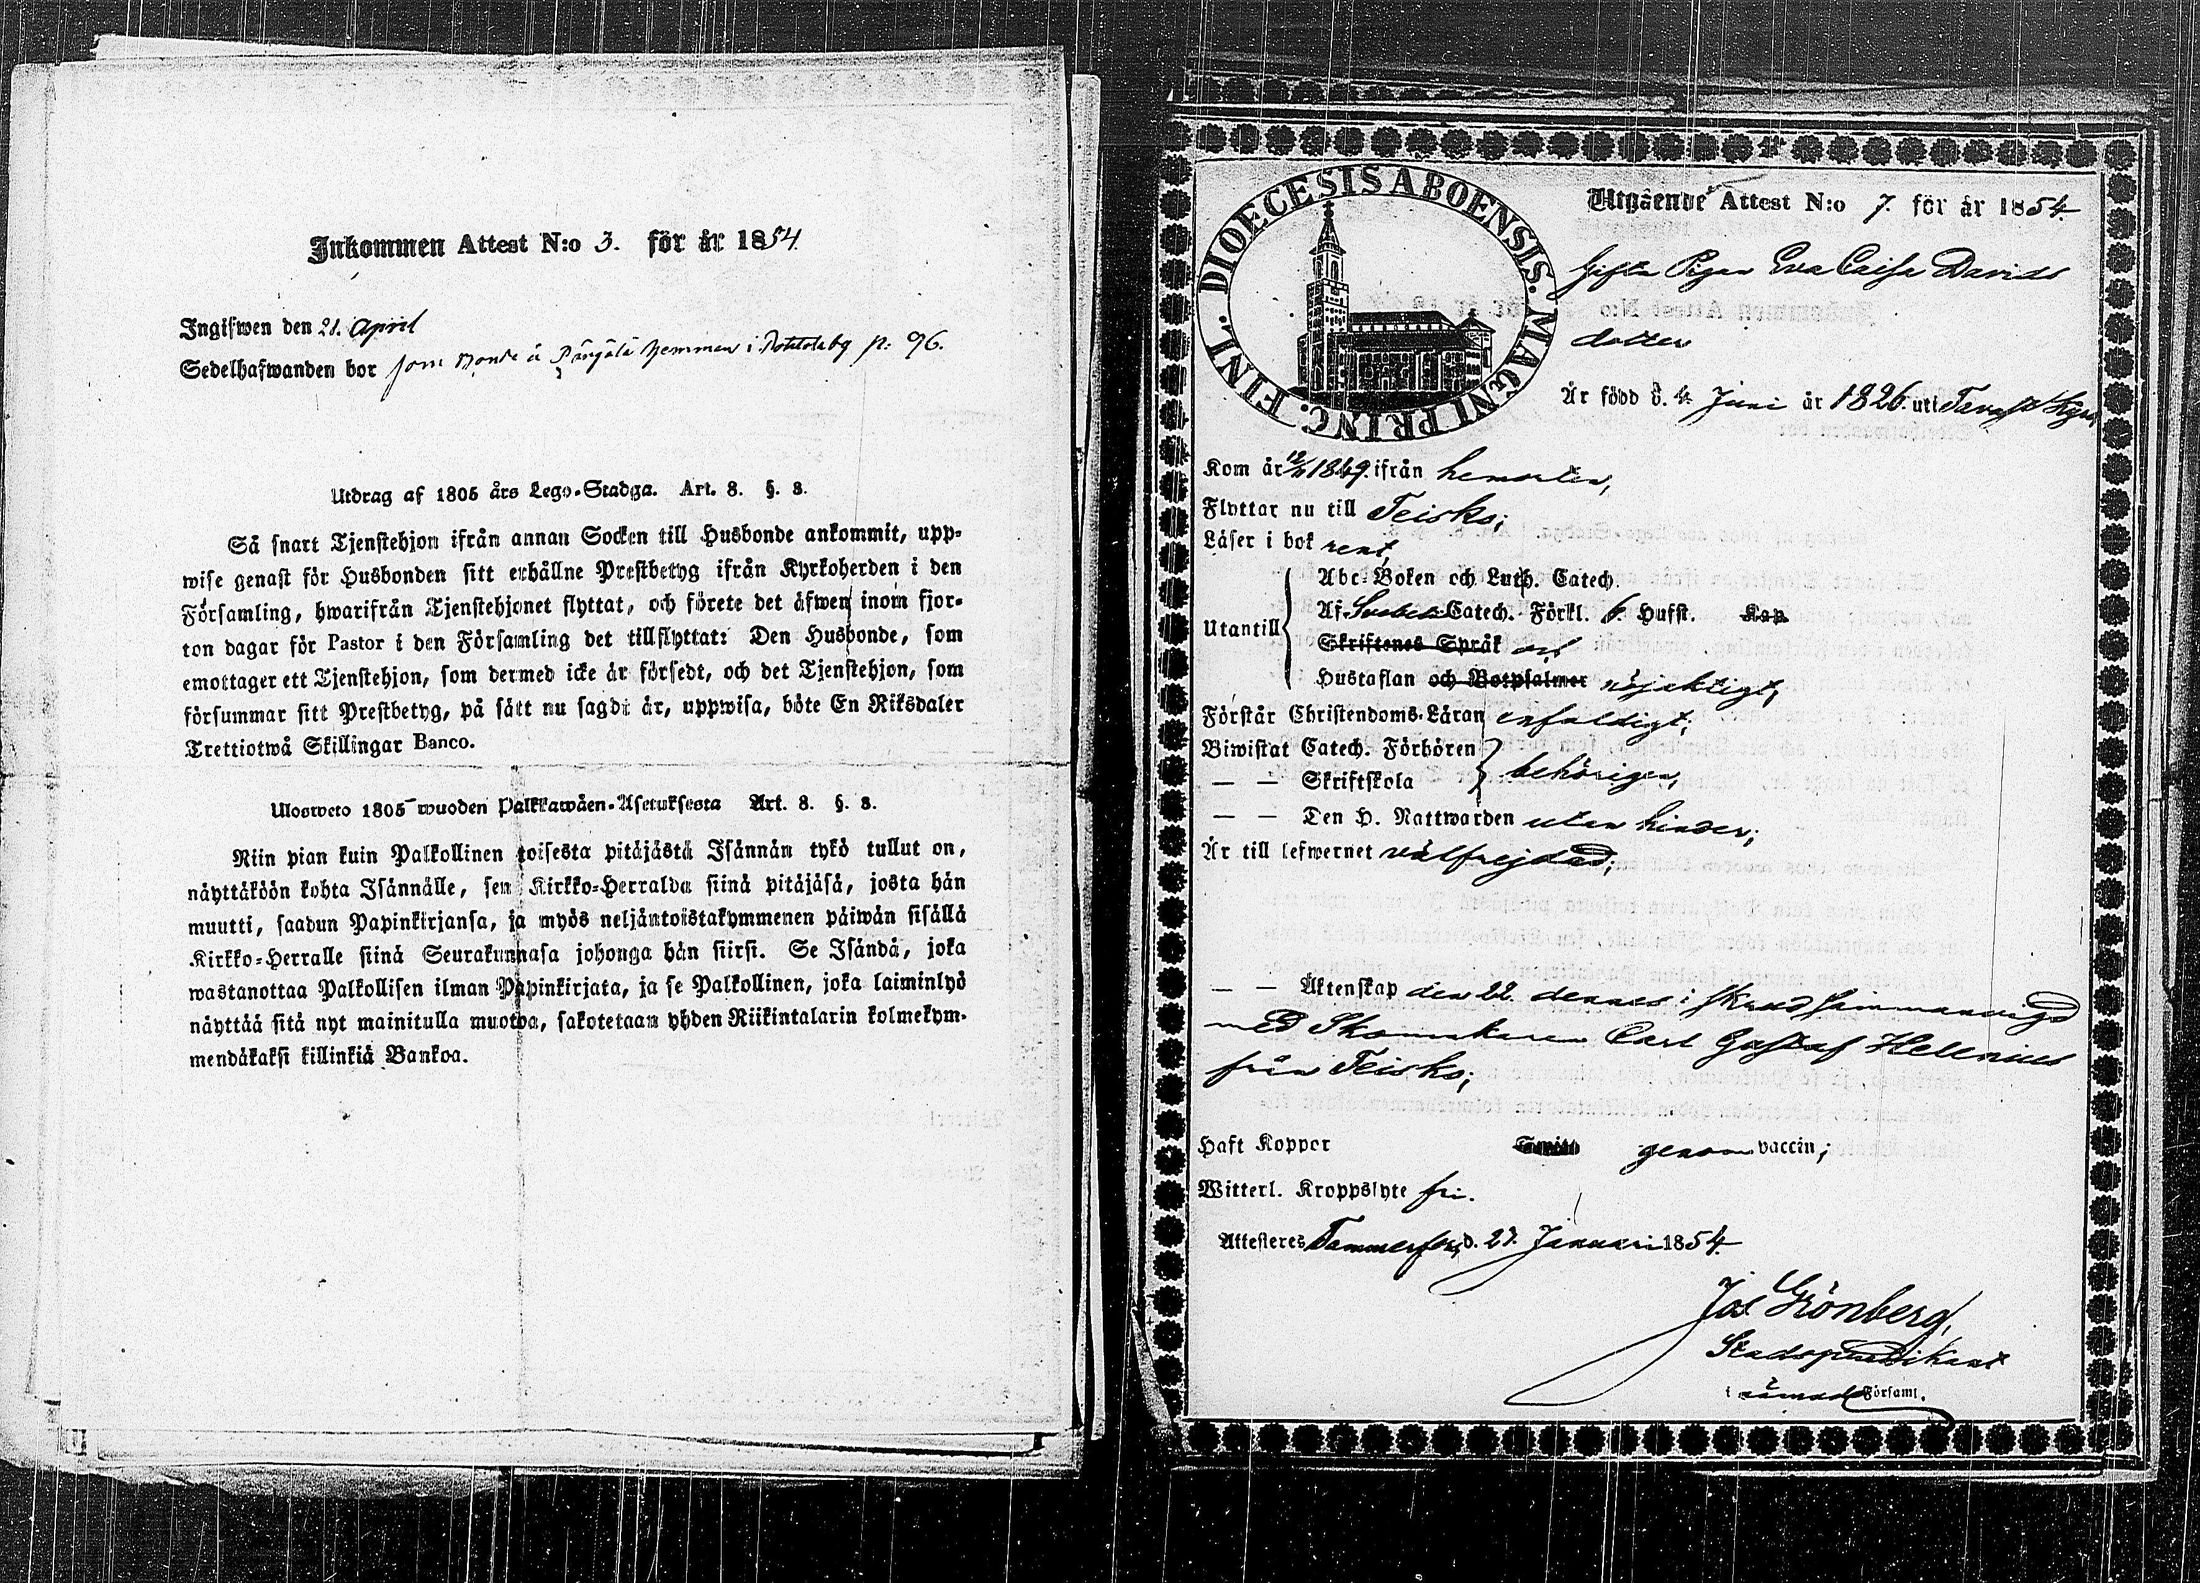 Inkommen Attest N:o 3. för år 1854.
Ingifwen den 21. April
Sedelhafwanden bor som Bonde å Pärjälä hemman i p: 96.
Utdrag af 1805 års Lego-Stadga. Art. 8. §. 8.
Så snart Tjenstehjon ifrån annan Socken till Husbonde ankommit, upp-
wise genast för Husbonden sitt erhållne Prestbetyg ifrån Kyrkoherden i den
Församling, hwarifrån Tjenstehjonet flyttat, och förete det äfwen inom fjor-
ton dagar för Pastor i den Församling det tillflyttat: Den Husbonde, som
emottager ett Tjenstehjon, som dermed icke är försedt, och det Tjenstehjon, som
försummar sitt Prestbetyg, på sätt nu sagdt är, uppwisa, böte En Riksdaler
Trettiotwå Skillingar Banco.
Ulosweto 1805 wuoden Palkkawäen-Asetuksesta Art. 8. §. 8.
Niin pian kuin Palkollinen toisesta pitäjästä Isännän tykö tullut on,
näyttäköön kohta Isännälle, sen Kirkko-Herralda siinä pitäjäsä, josta hän
muutti, saadun Papinkirjansa, ja myös neljäntoistakymmenen päiwän sisällä
Kirkko-Herralle siinä Seurakunnasa johonga hän siirsi. Se Isändä, joka
wastanottaa Palkollisen ilman Papinkirjata, ja se Palkollinen, joka laiminlyö
näyttää sitä nyt mainitulla muotoa, sakotetaan yhden Riikintalarin kolmekym-
mendäkaksi killinkiä Bankoa.
FINL. DIOECESIS ABOENSIS. MAGNI PRINC.
Utgående Attest N:o 7. för år 1854.
Gifta Pigan Eva Caisa Davids
dotter
Är född d. 4 Juni år 1826. uti Tavastkyro,
Kom år 12/11 1849. ifrån hemorten,
Flyttar nu till Teisko;
Läser i bok rent,
Abc-Boken och Luth. Catech.
Utantill Af Svebelii Catech. Förkl. 6. Hufst. Kap.
Skriftenes Språk
Hustaflan och Botpsalmer nöjaktigt,
Förstår Christendoms-Läran enfaldigt;
Biwistat Catech. Förhören
— — Skriftskola behörigen,
— — Den H. Nattwarden utan hinder;
Är till lefwernet välfrejdad;
— — Äktenskap den 22. dennes i sammanvigd
med Skomakaren Carl Gustaf Hellenius
från Teisko;
Haft Koppor genom vaccin;
Witterl. Kroppslyte fri.
Attesteres Tammerfors, d. 27. Januari 1854.
Jos Grönberg,
Stadspredikant
i nämnde Församl.